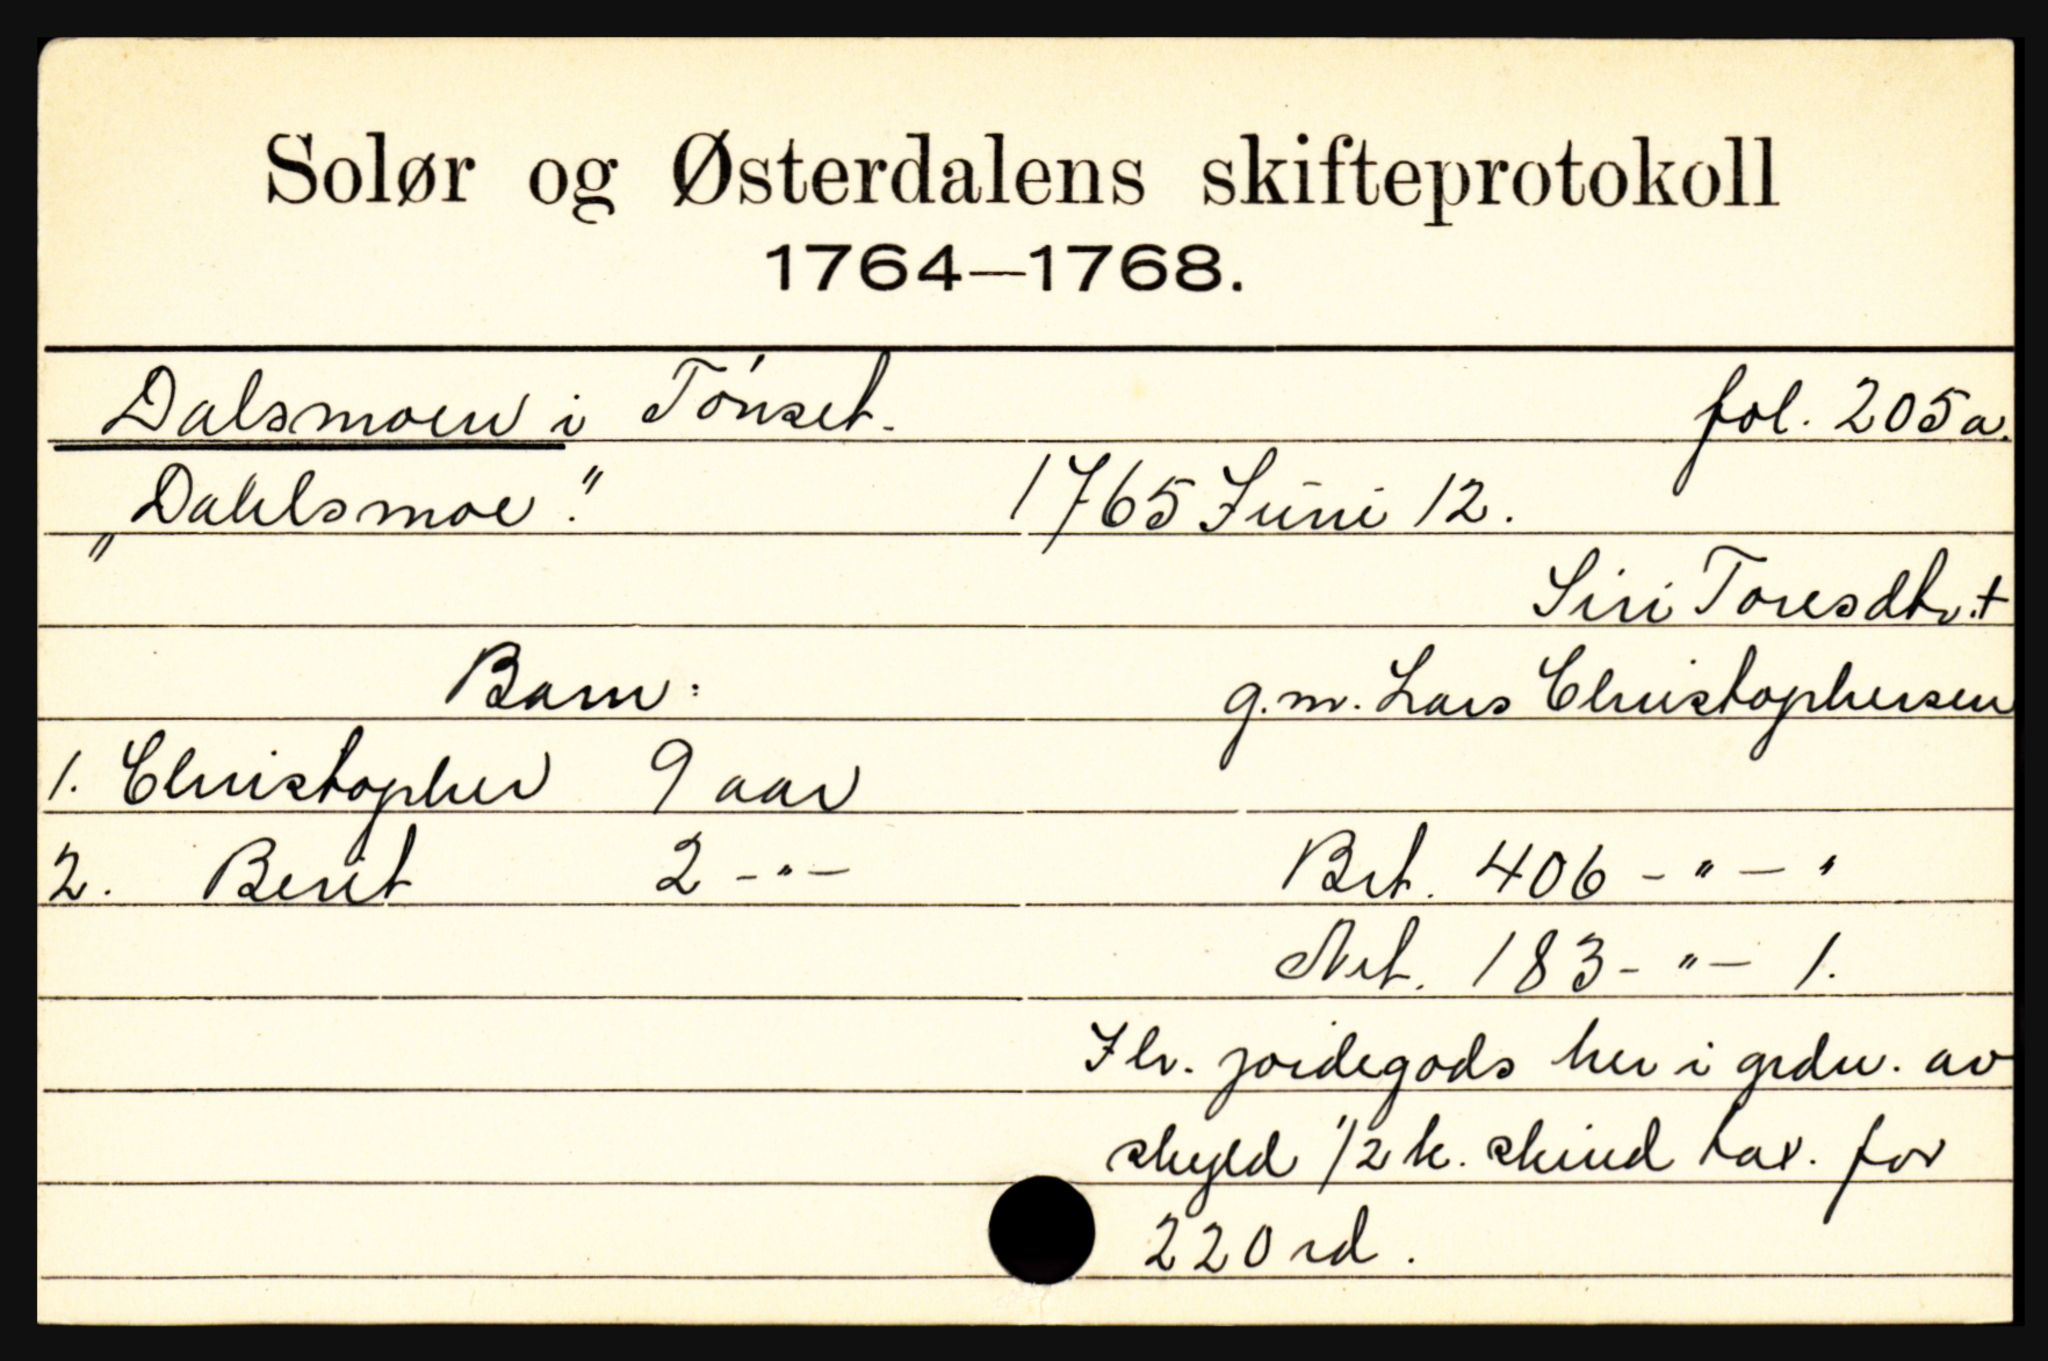 Solør og Østerdalens skifteprotokoll
1764—1768.
Dalsmoen i Tönset. fol. 205a.
"Dahlsmoe." 1765 Juni 12.
Siri Toresdtr. †
Barn: g.m. Lars Christophersen
1. Christopher 9 aar
2. Berit 2 -"- Brt. 406 - " - "
Nrt. 183 - " - 1.
Flr. jordegods her i grdn. av
skyld 1/2 k. skind tax. for
220 rd.